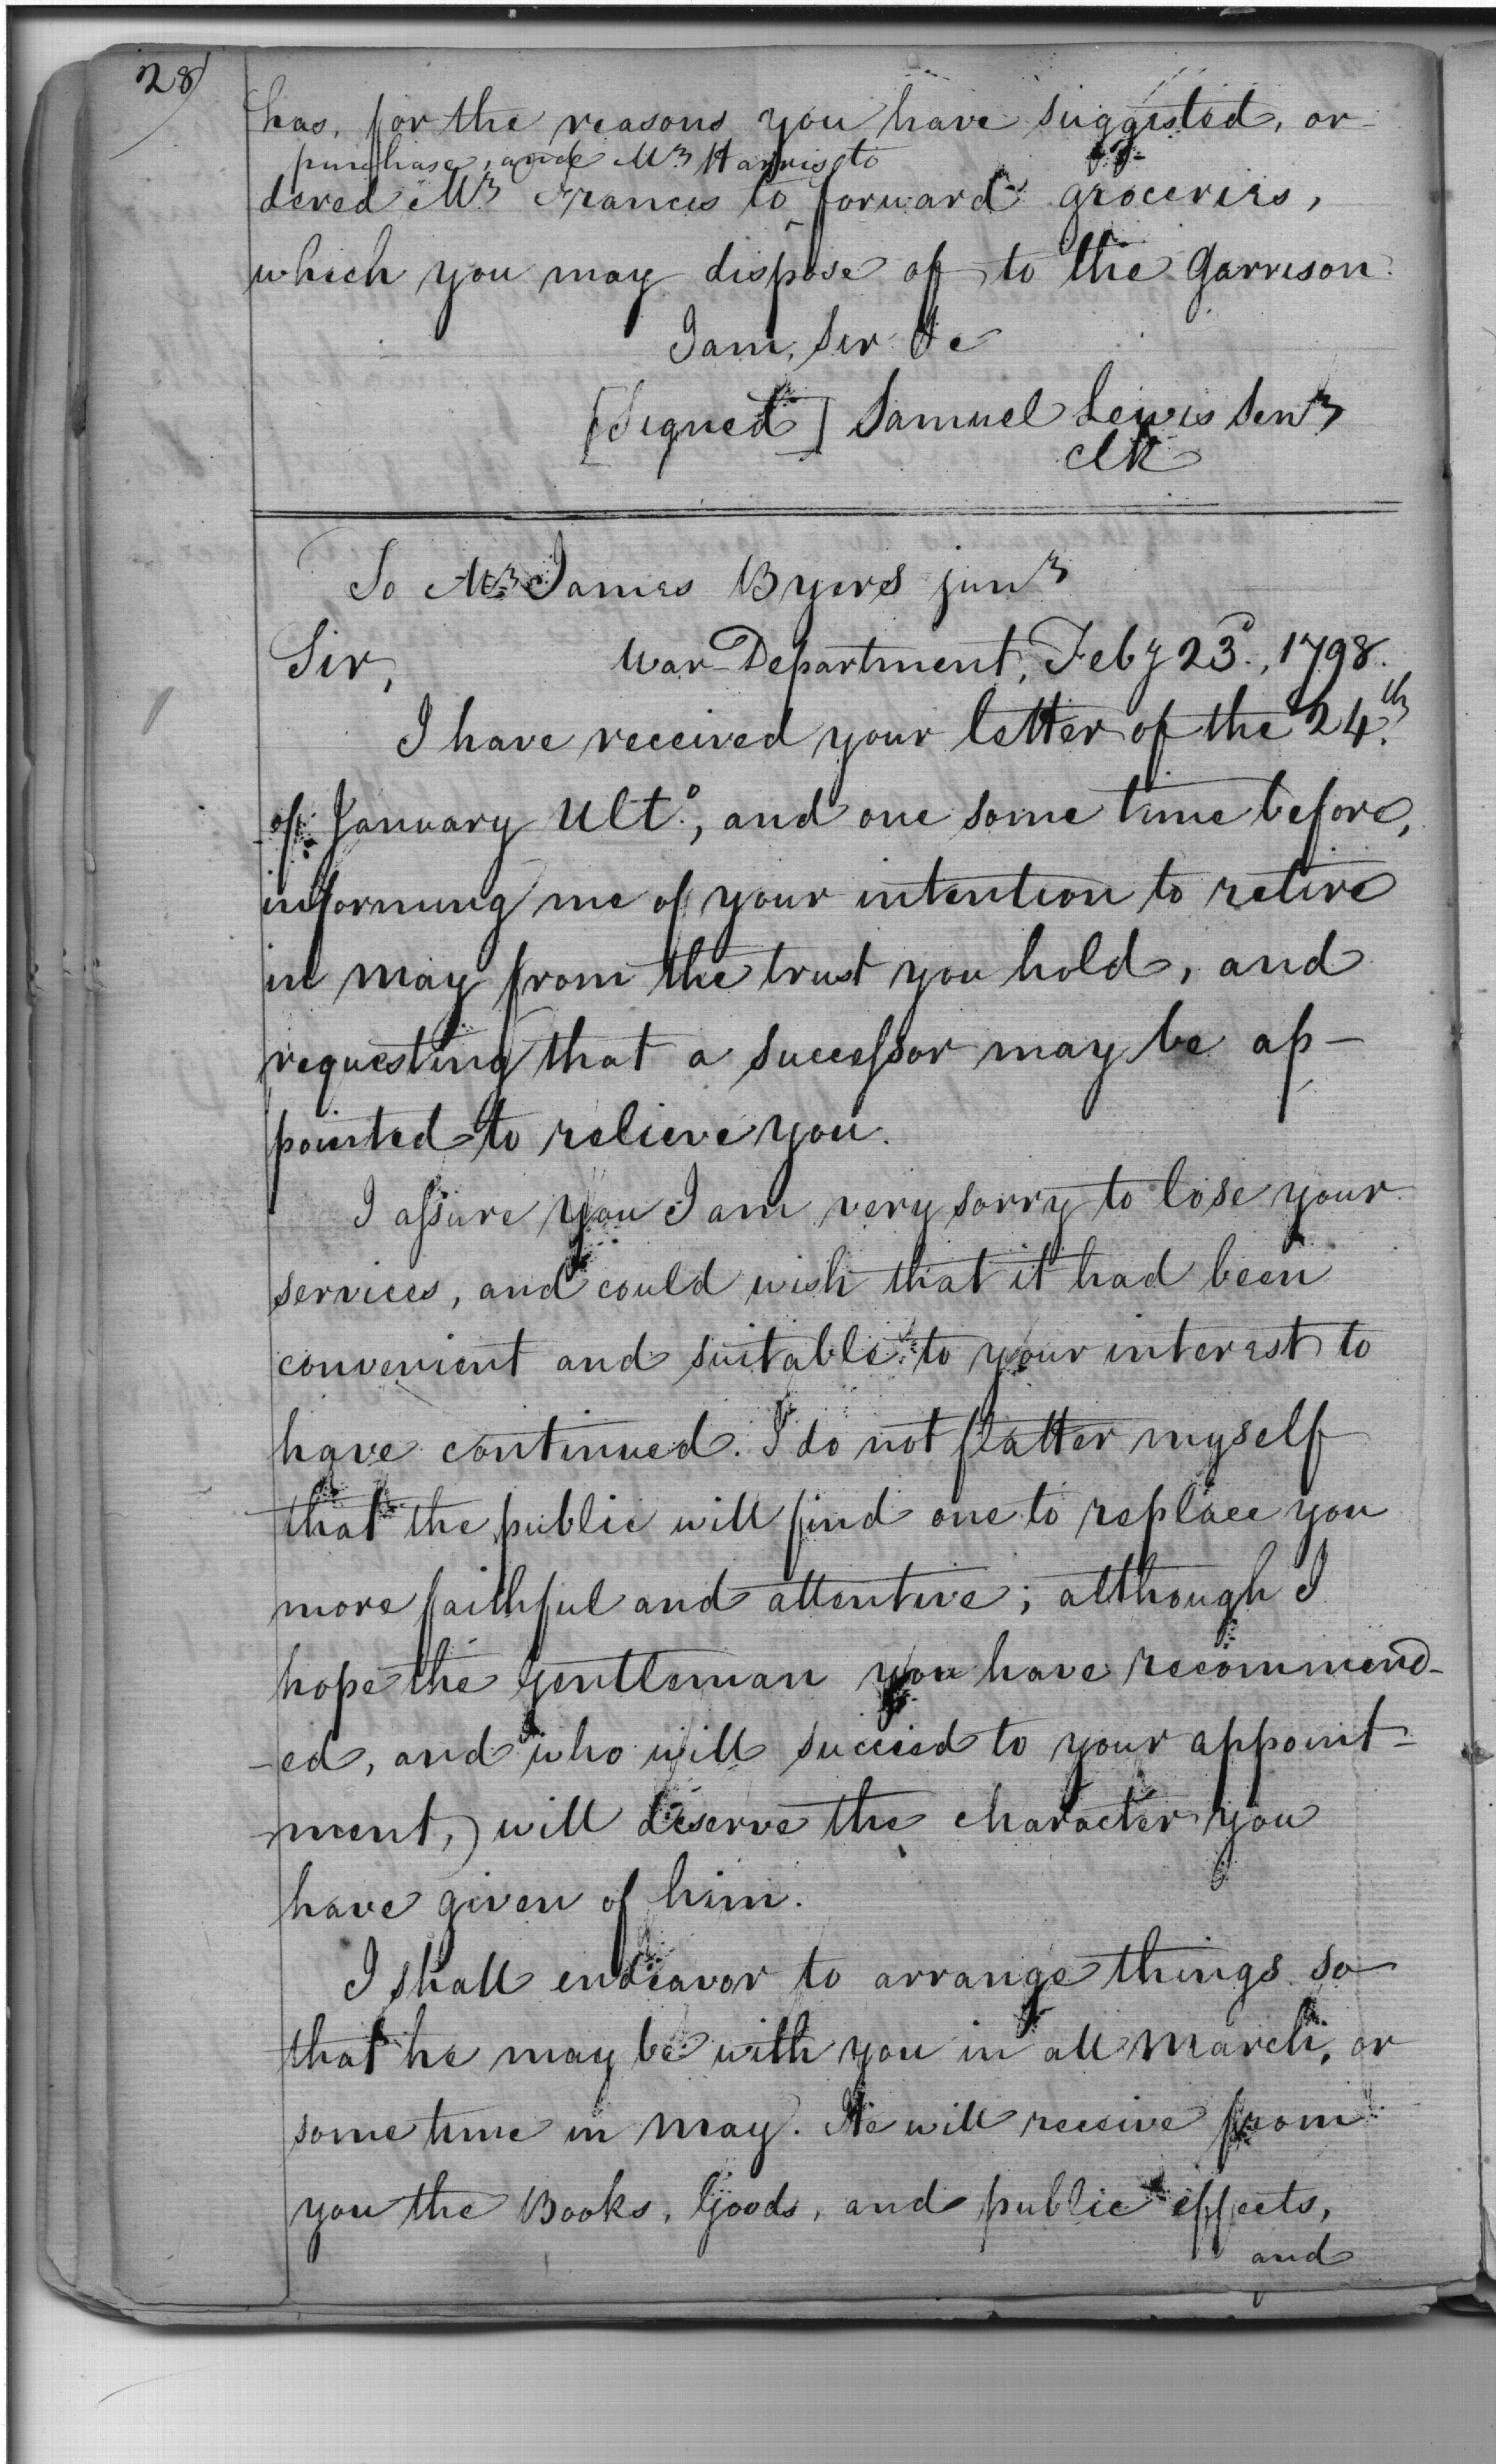 28
has, for the reasons you have suggested, or-
purchase, and Mr Harris to
dered Mr Francis to ‸ forward groceries,
which you may dispose of to the Garrison.
I am, Sir &c
[Signed] Samuel Lewis Senr
Clk
To Mr James Byers junr
Sir, War Department, Feby 23d., 1798.
I have received your letter of the 24th.
of January Ulto., and one some time before,
informing me of your intention to retire
in may from the trust you hold, and
requesting that a successor may be ap-
pointed to relieve you.
I assure you I am very sorry to lose your
services, and could wish that it had been
convenient and suitable to your interest to
have continued. I do not flatter myself
that the public will find one to replace you
more faithful and attentive; although I
hope the gentleman you have recommend-
-ed, and who will succeed to your appoint-
-ment,) will deserve the character you
have given of him.
I shall endeavor to arrange things so
that he may be with you in all March, or
some time in may. He will receive from
you the Books, Goods, and public effects,
and